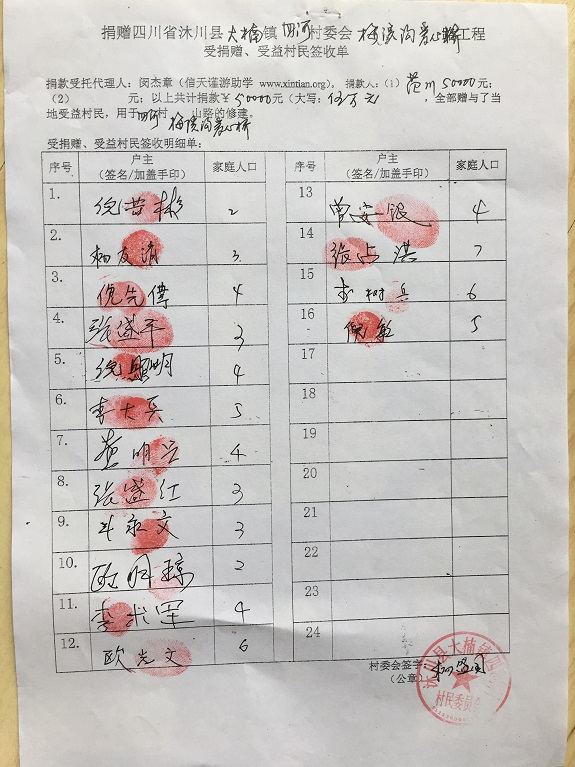 捐赠四川省沐川县大楠镇四河村委会梅溪沟爱心桥工程
受捐赠、受益村民签收单
捐款受托代理人：闵杰章（信天谨游助学 www.xintian.org）。捐款人：（1）范川50000元；
（2） 元；以上共计捐款￥50000元（大写：伍万元 ，全部赠与了当
地受益村民，用于四河村 山路的修建。
梅溪沟爱心桥
受捐赠、受益村民签收明细单：
序号 户主（签名/加盖手印） 家庭人口 序号 户主（签名/加盖手印） 家庭人口
1. 倪昔彬 2
2. 杨友清 3
3. 倪先偉 4
4. 张盛平 3
5. 倪照明 4
6. 李大兵 5
7. 明兴 4
8. 张盛红 3
9. 永文 3
10. 欧明琼 2
11. 李光军 4
12. 欧光文 6
13 曾安银 4
14 张占洪 7
15 李树兵 6
16 倪乾 5
17
18
19
20
21
22
23
24
村委会签字：
（公章）
沐川县大楠镇
村民委员会